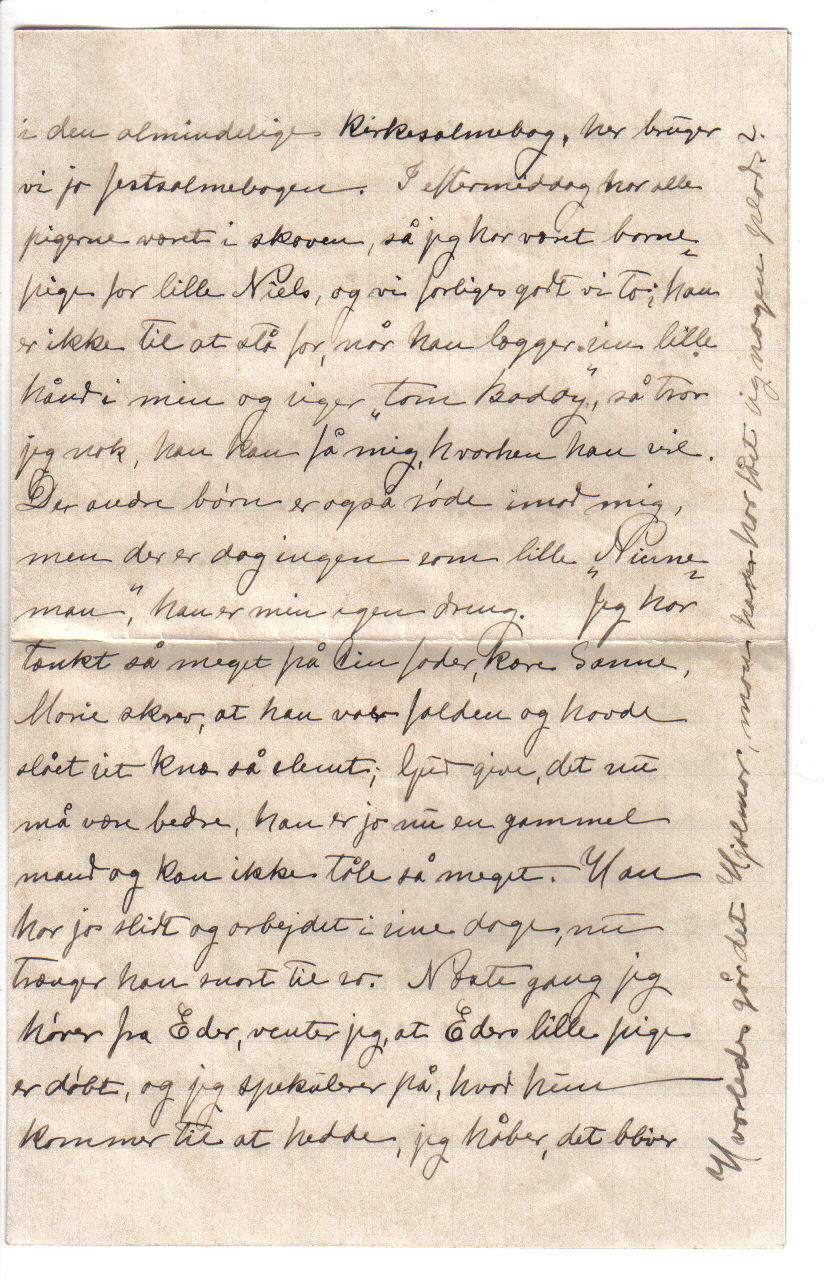 i den almindelige Kirkesalmebog, her bruger
vi jo festsalmebogen. I eftermiddag har alle
pigerne været i skoven, så jeg har været barne-
pige for lille Niels, og vi forliges godt vi to; han
er ikke til at stå for, når han lægger sin lille
hånd i min og siger „tom Baddy", så tror
jeg nok, han kan få mig, hvorhen han vil.
De andre børn er også søde imod mig,
men der er dog ingen som lille „Ninne-
man", han er min egen dreng. Jeg har
tænkt så meget på din fader, kære Sanne,
Marie skrev, at han var falden og havde
slået sit knæ så slemt; Gud give, det nu
må være bedre, han er jo nu en gammel
mand og kan ikke tåle så meget. Han
har jo slidt og arbejdet i sine dage, nu
trænger han snart til ro. Næste gang jeg
hører fra Eder, venter jeg, at Eders lille pige
er døbt, og jeg spekulerer på, hvad hun
kommer til at hedde, jeg håber, det bliver
Hvorledes går det Hjalmar, mon har fået sig nogen plads?